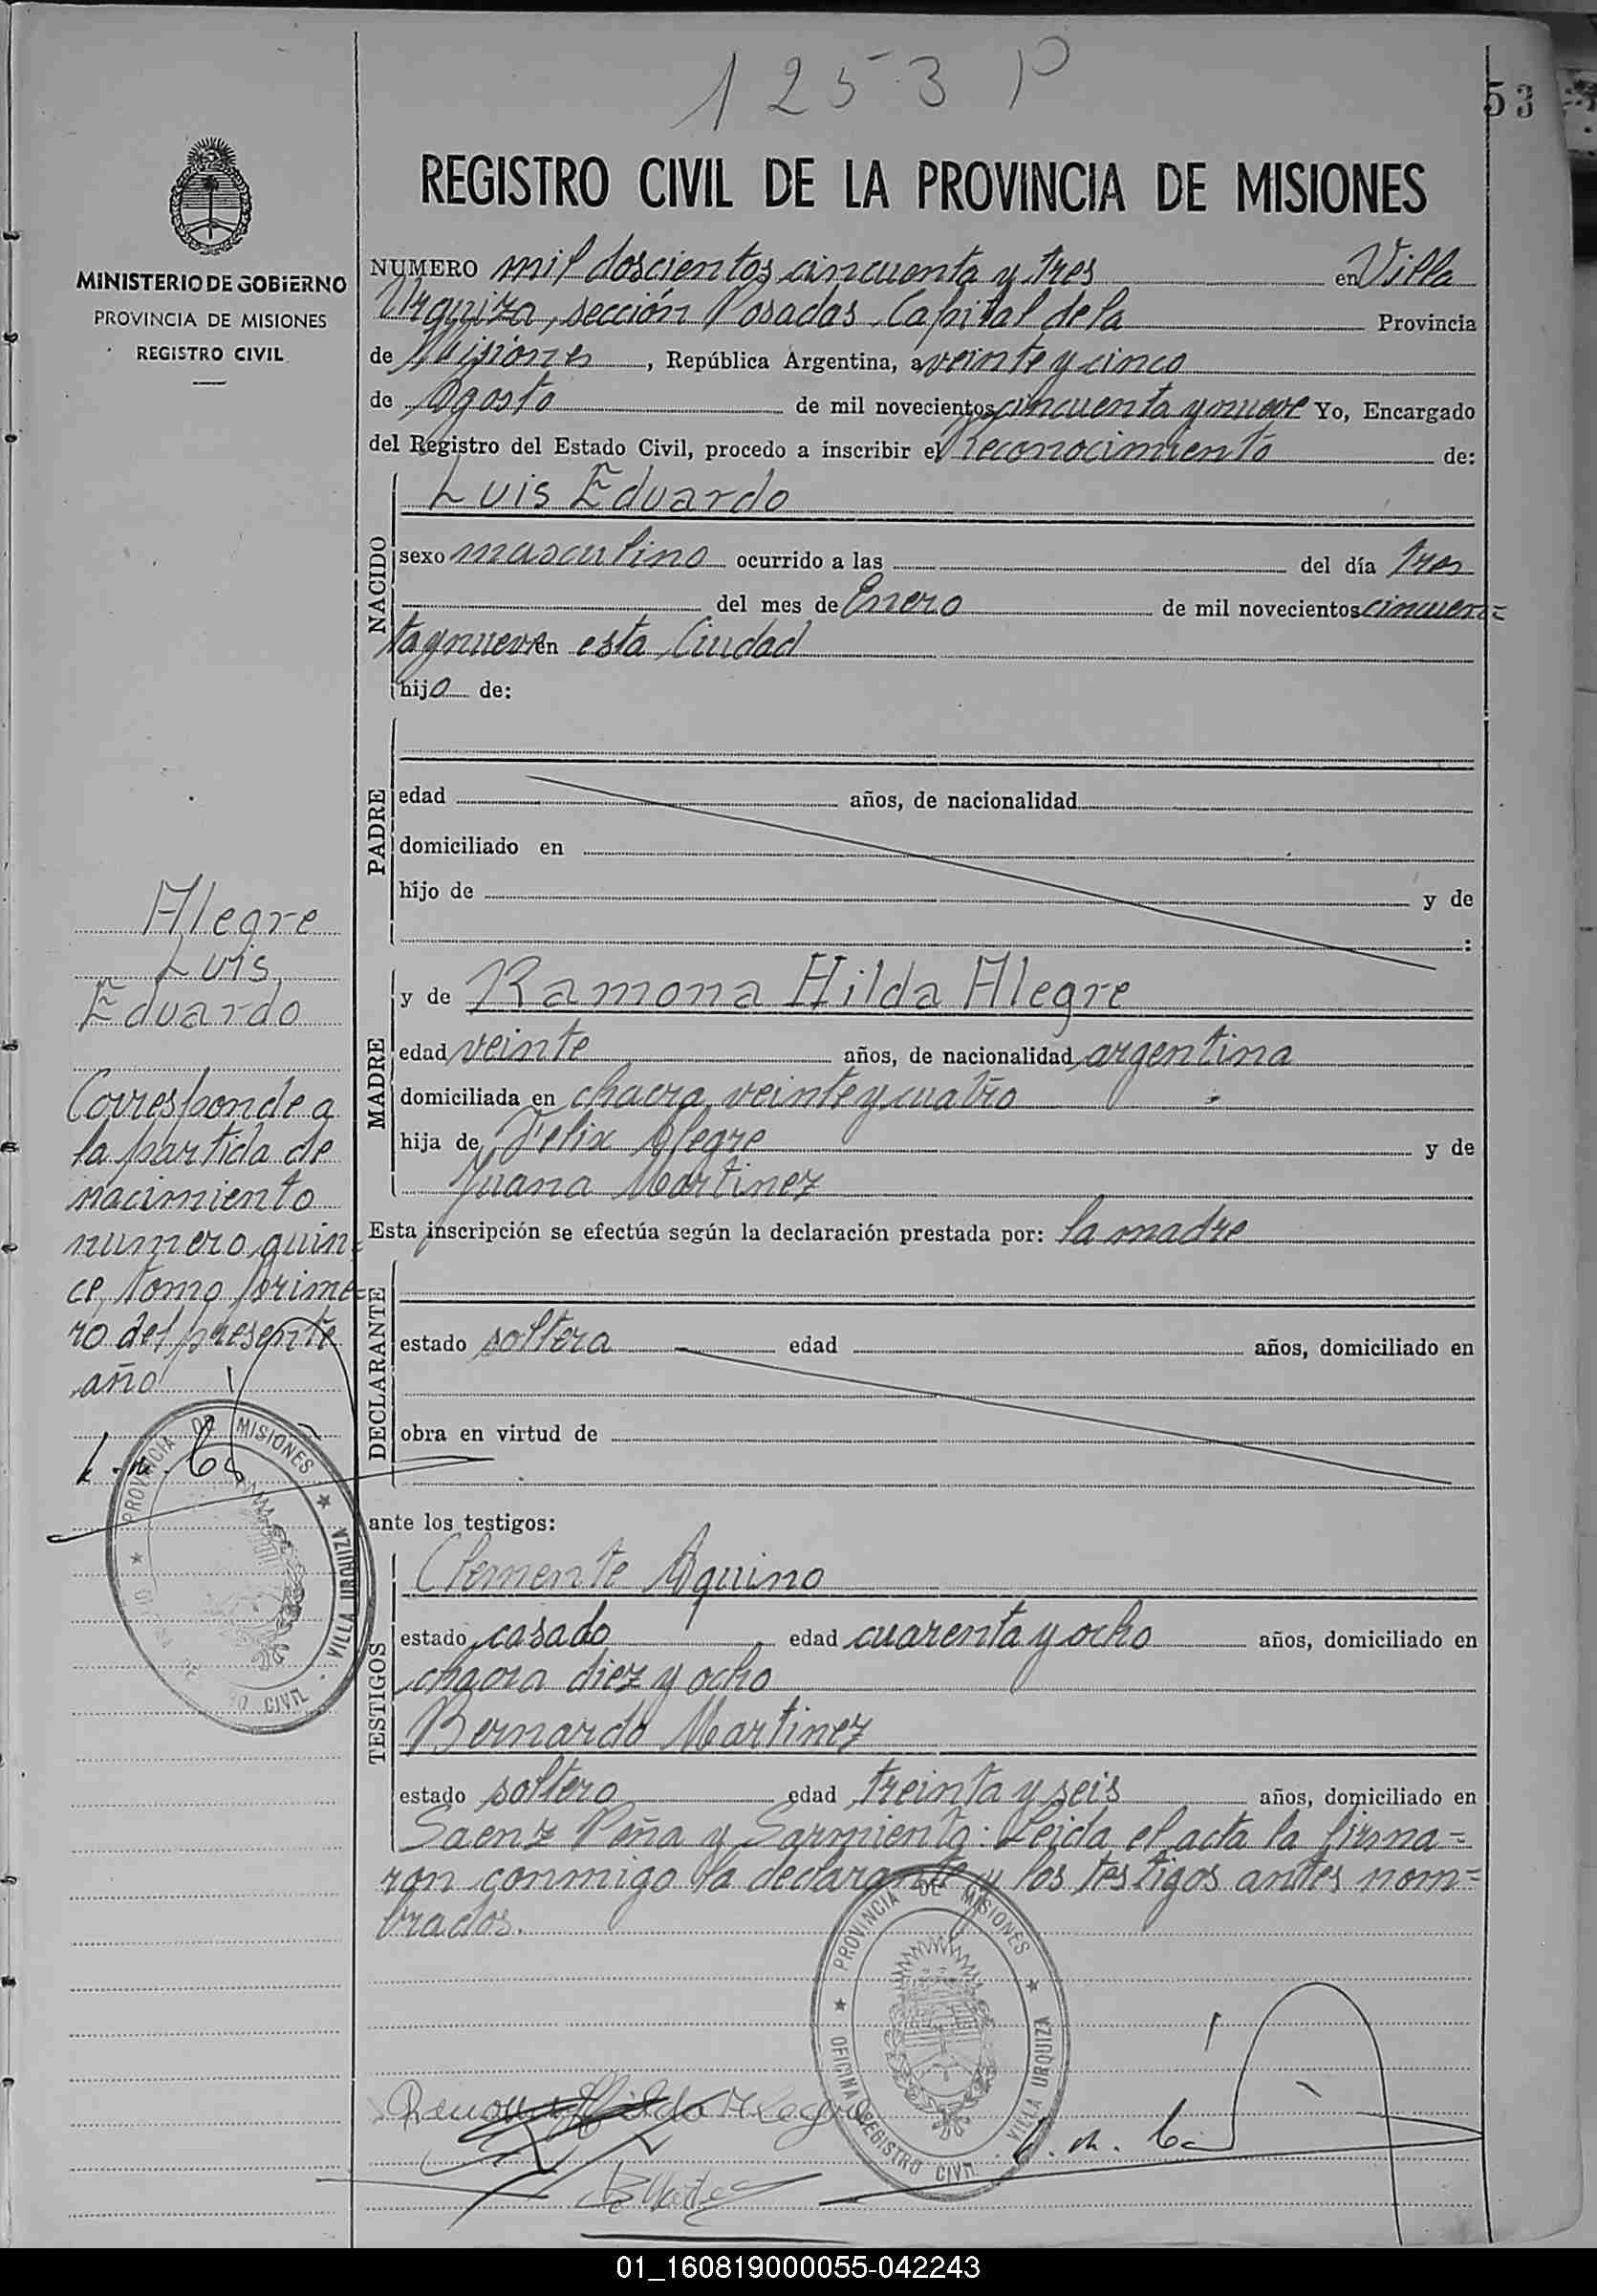 1253 P
53
REGISTRO CIVIL DE LA PROVINCIA DE MISIONES
MINISTERIO DE GOBIERNO
PROVINCIA DE MISIONES
REGISTRO CIVIL
NUMERO mil doscientos cincuenta y tres en Villa
Urquiza, sección Posadas Capital de la Provincia
de Misiones, República Argentina, a veinte y cinco
de Agosto de mil novecientos cincuenta y nueve Yo, Encargado
del Registro del Estado Civil, procedo a inscribir el reconocimiento de:
NACIDO
Luis Eduardo
sexo masculino ocurrido a las del día tres
del mes de Enero de mil novecientos cincuen=
ta y nueve en esta Ciudad
hijo de:
PADRE
edad años, de nacionalidad
domiciliado en
hijo de y de
:
Alegre
Luis
Eduardo
Corresponde a
la partida de
nacimiento
numero quin=
ce, tomo prime=
ro del presente
año
MADRE
y de Ramona Hilda Alegre
edad veinte años, de nacionalidad argentina
domiciliada en chacra veinte y cuatro
hija de Felix Alegre y de
Juana Martinez
Esta inscripción se efectúa según la declaración prestada por: la madre
DECLARANTE
estado soltera edad años, domiciliado en
obra en virtud de
PROVINCIA DE MISIONES
VILLA URQUIZA
CIVIL
ante los testigos:
TESTIGOS
Clemente Aquino
estado casado edad cuarenta y ocho años, domiciliado en
chacra diez y ocho
Bernardo Martinez
estado soltero edad treinta y seis años, domiciliado en
Saenz Peña y Sarmiento: Leida el acta la firma=
ron conmigo la declarante y los testigos antes nom=
brados.
PROVINCIA DE MISIONES
OFICINA REGISTRO CIVIL
VILLA URQUIZA
Ramona Hilda Alegre
01_160819000055-042243